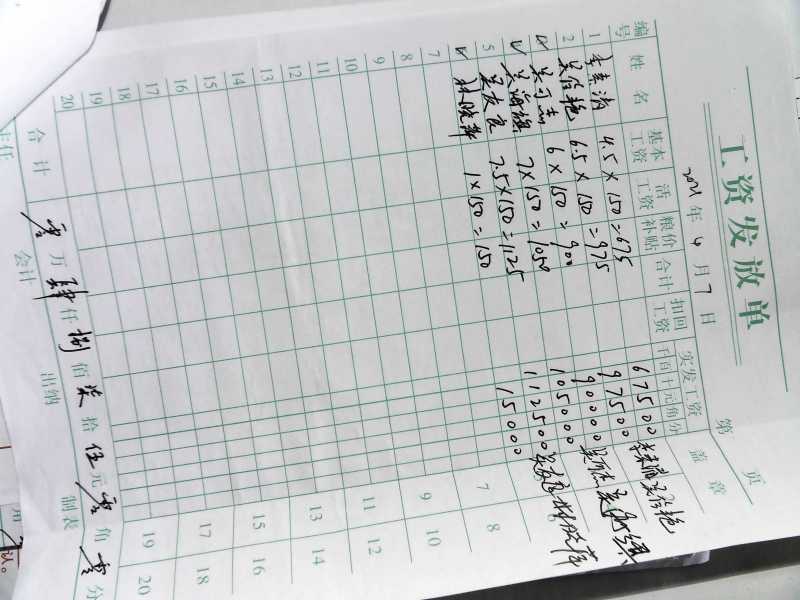 工资发放单
2021年 4 月 7 日
第 页
编号 姓名 基本工资 活工资 粮价补贴 合计 扣回工资 实发工资 千百十元角分 盖章
1 4.5 × 150 = 675 67500
2 吴信艳 6.5 × 150 = 975 97500
6 × 150 = 900 90000
吴海旗 7 × 150 = 1050 105000
5 吴友良 7.5 × 150 = 1125 112500
1 × 150 = 150 15000
7 7 8
8
9 9 10
10
11 11 12
12
13 13 14
14
15 15 16
16
17 17 18
18
19 19 20
20
合计 零万肆仟捌佰柒拾伍元零角零分
主任 会计 出纳 制表